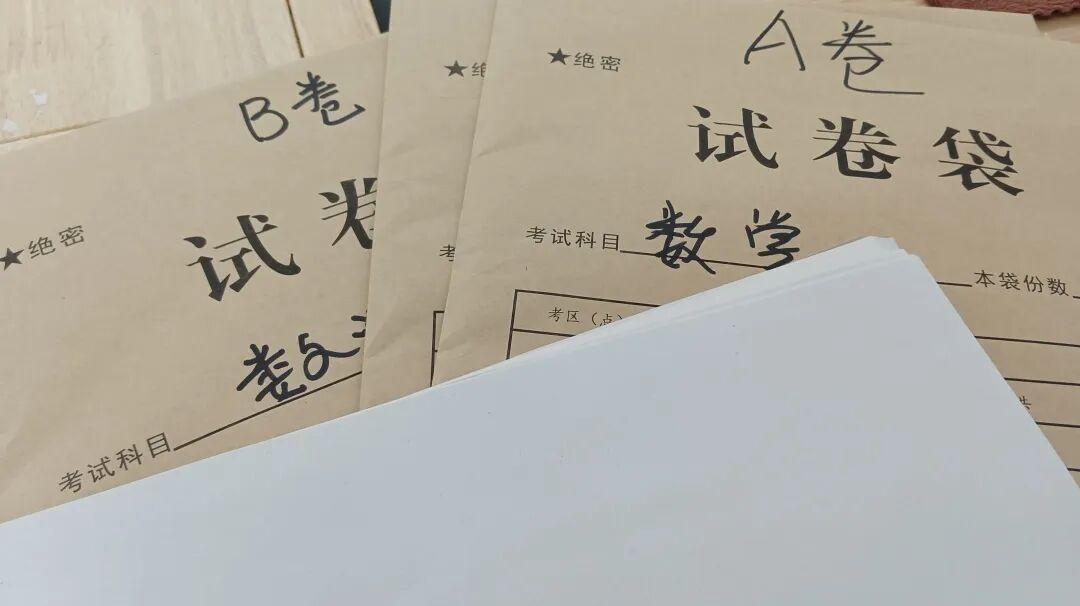 B卷
★绝密
试卷
数
考试科目
★绝
A卷
★绝密
试卷袋
考试科目 数学
本袋份数
考区（点）